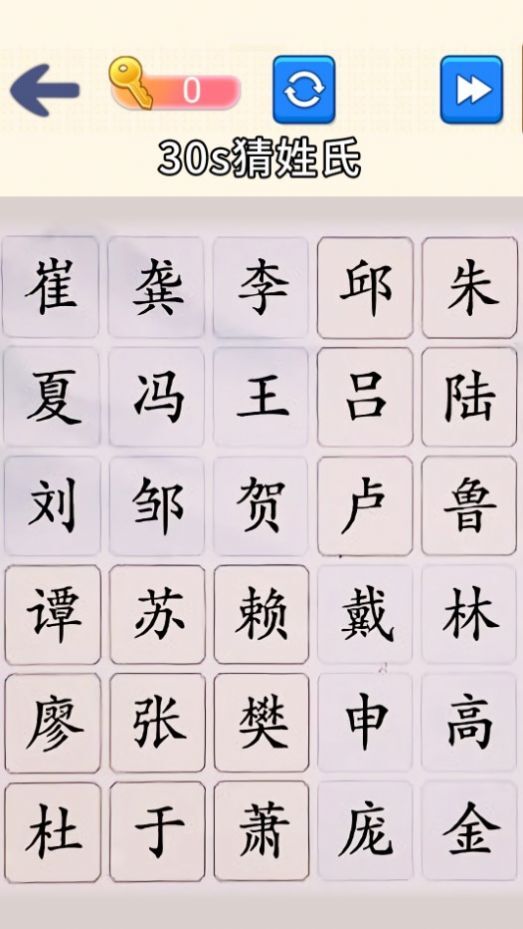 0
30s猜姓氏
崔 龚 李 邱 朱
夏 冯 王 吕 陆
刘 邹 贺 卢 鲁
谭 苏 赖 戴 林
廖 张 樊 申 高
杜 于 萧 庞 金